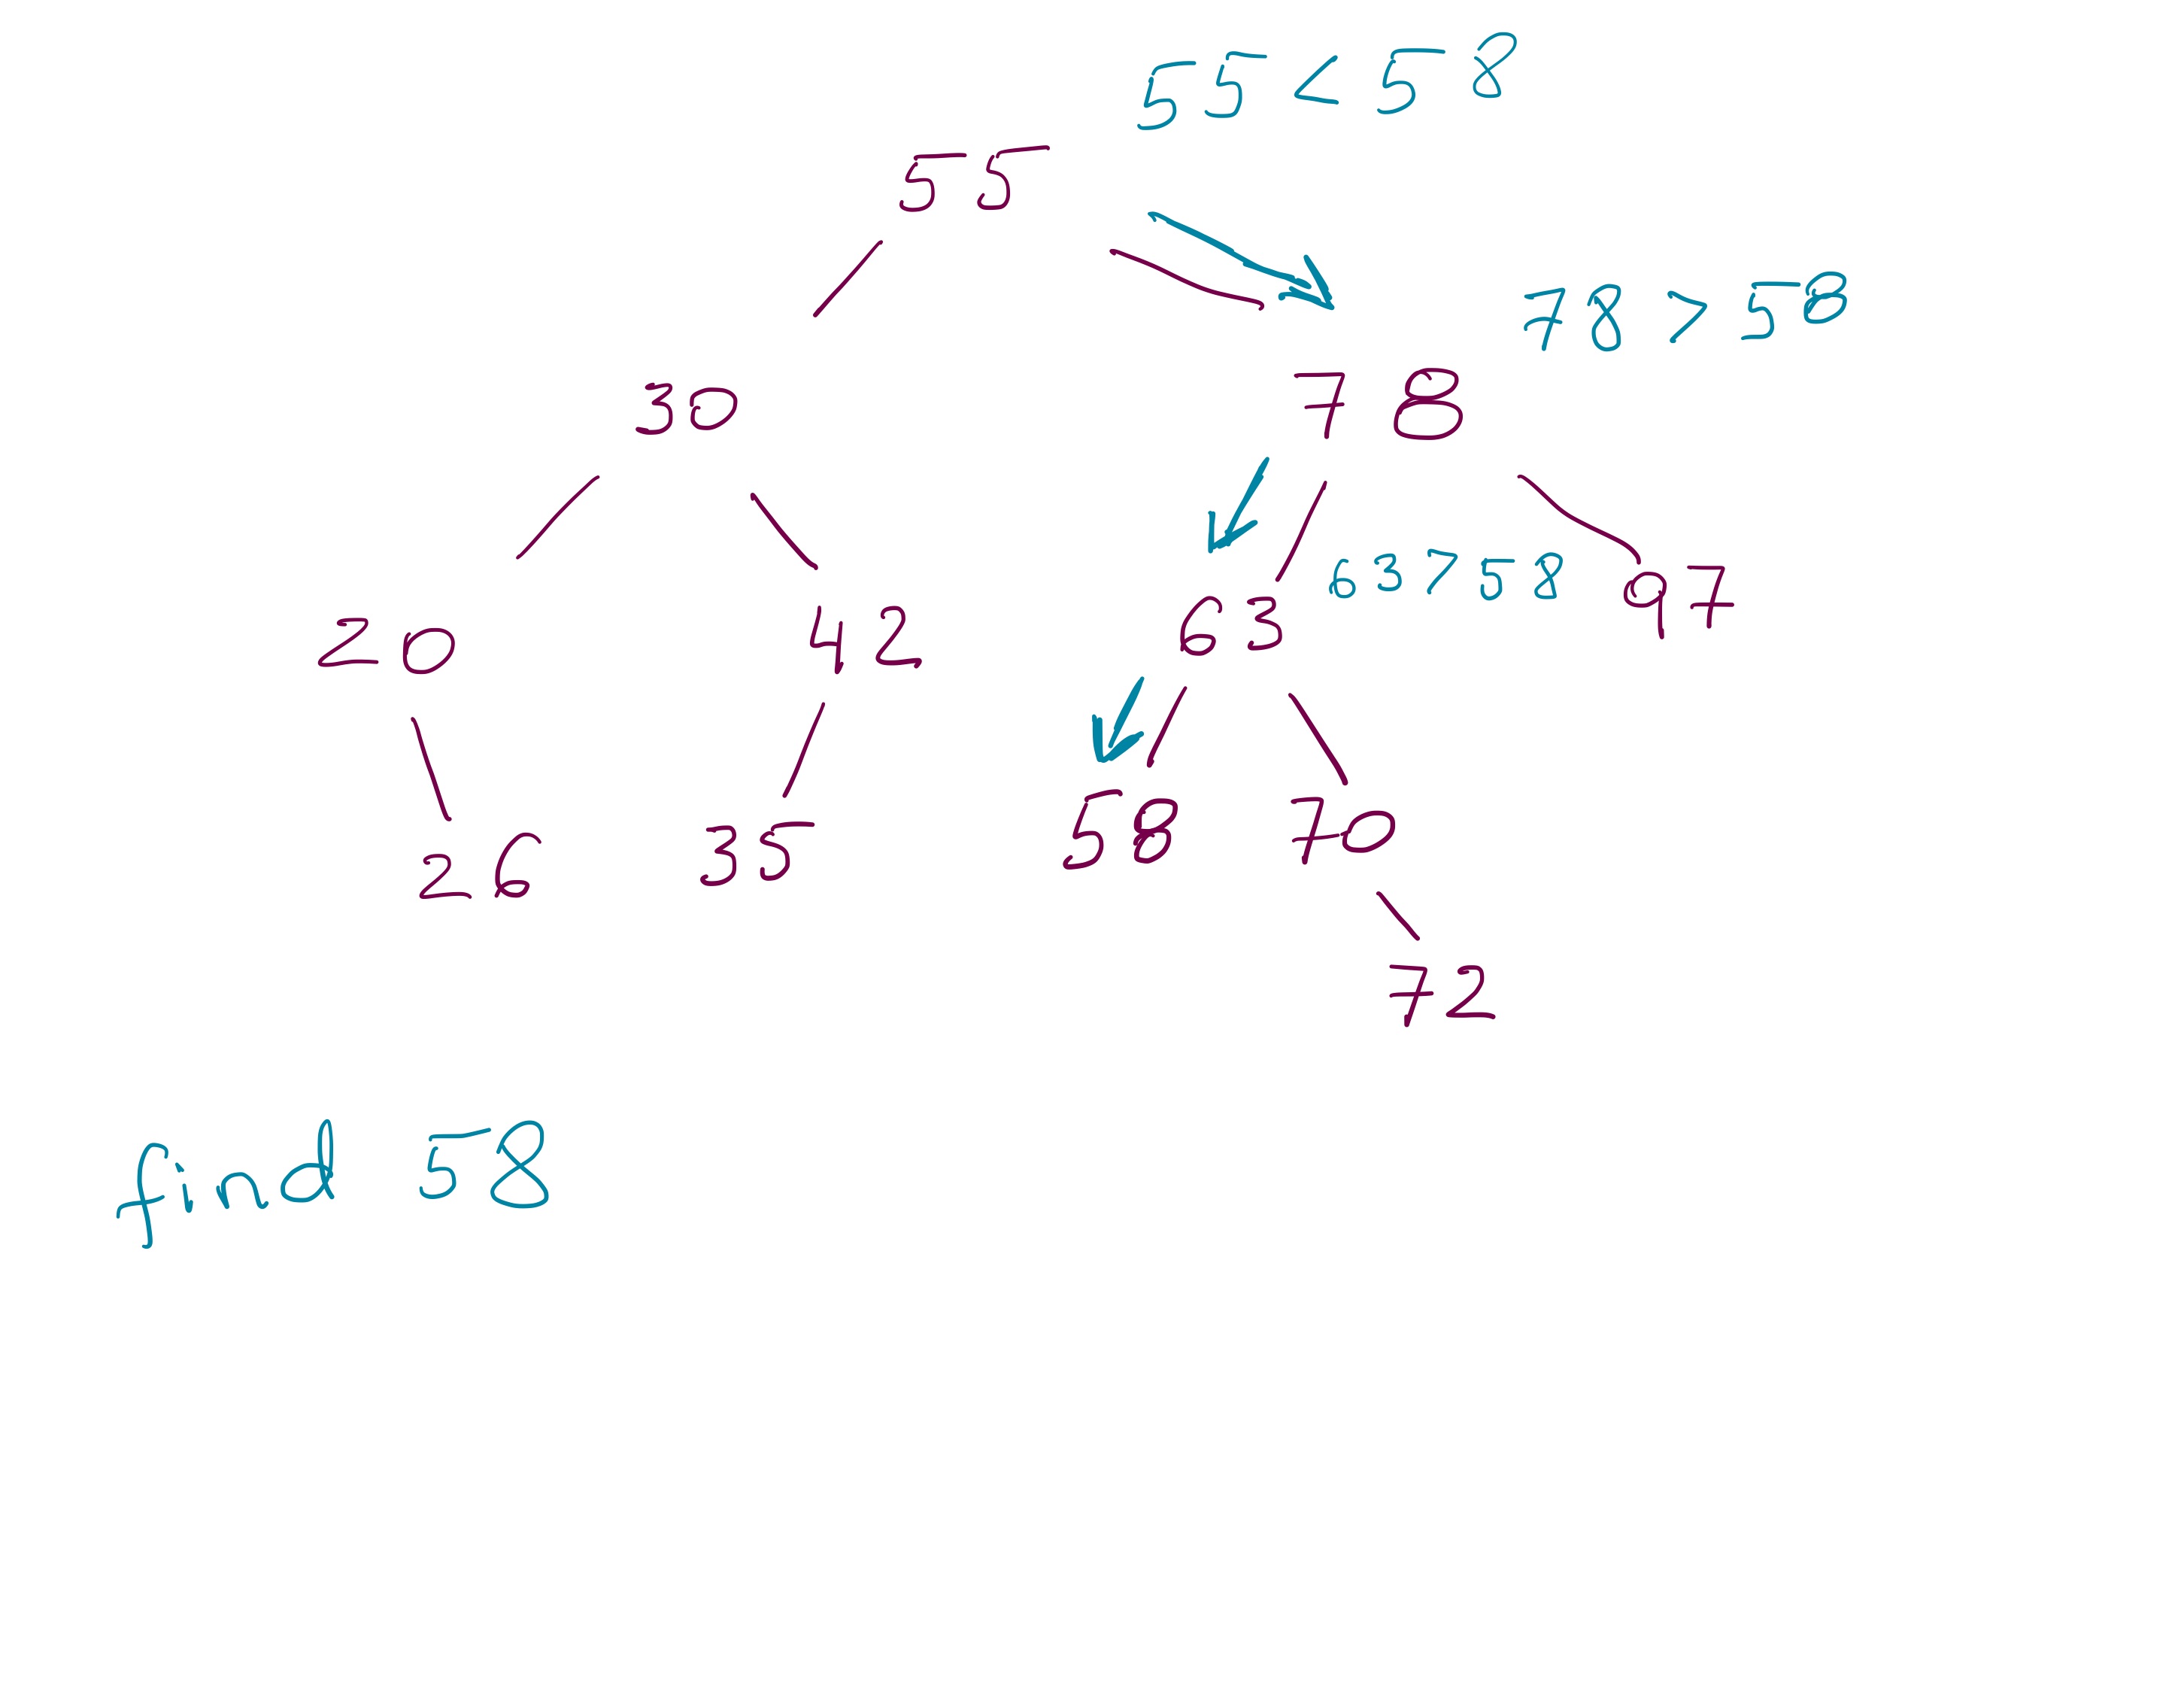 55 < 58
55
78 > 58
30 78
63 > 58
20 42 63 97
26 35 58 70
72
find 58